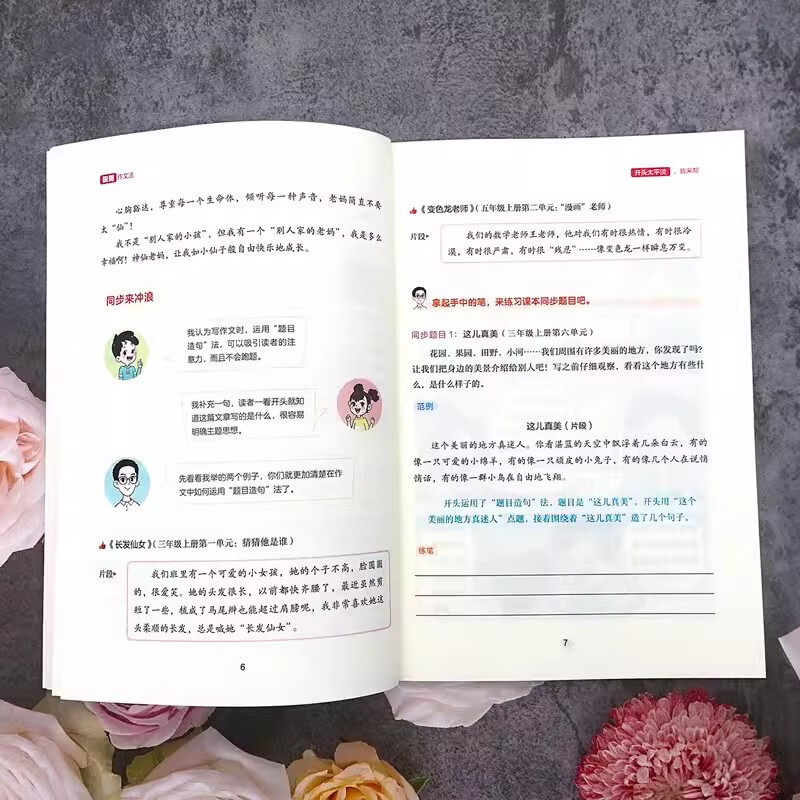 作文法
心胸豁达，尊重每一个生命体，倾听每一种声音，老妈简直不要
太“仙”！
我不是“别人家的小孩”，但我有一个“别人家的老妈”，我是多么
幸福啊！神仙老妈，让我如小仙子般自由快乐地成长。
同步来冲浪
我认为写作文时，运用“题目
造句”法，可以吸引读者的注
意力，而且不会跑题。
我补充一句，读者一看开头就知
道这篇文章写的是什么，很容易
明确主题思想。
先看看我举的两个例子，你们就更加清楚在作
文中如何运用“题目造句”法了。
《长发仙女》（三年级上册第一单元：猜猜他是谁）
片段
我们班里有一个可爱的小女孩，她的个子不高，脸圆圆
的，很爱笑。她的头发很长，以前都快齐腰了，最近虽然剪
短了一些，梳成了马尾辫也能超过肩膀呢，我非常喜欢她这
头柔顺的长发，总是喊她“长发仙女”。
6
开头太平淡，我来帮
《变色龙老师》（五年级上册第二单元：“漫画”老师）
片段
我们的数学老师王老师，他对我们有时很热情，有时很冷
漠，有时很严肃，有时很“残忍”……像变色龙一样瞬息万变。
拿起手中的笔，来练习课本同步题目吧。
同步题目1：这儿真美（三年级上册第六单元）
花园、果园、田野、小河……我们周围有许多美丽的地方，你发现了吗？
让我们把身边的美景介绍给别人吧！写之前仔细观察，看看这个地方有些什
么，是什么样子的。
范例
这儿真美（片段）
这个美丽的地方真迷人。你看湛蓝的天空中飘浮着几朵白云，有的
像一只可爱的小绵羊，有的像一只顽皮的小兔子，有的像几个人在说悄
悄话，有的像一群小鸟在自由地飞翔。
开头运用了“题目造句”法，题目是“这儿真美”，开头用“这个
美丽的地方真迷人”点题，接着围绕着“这儿真美”造了几个句子。
练笔
7